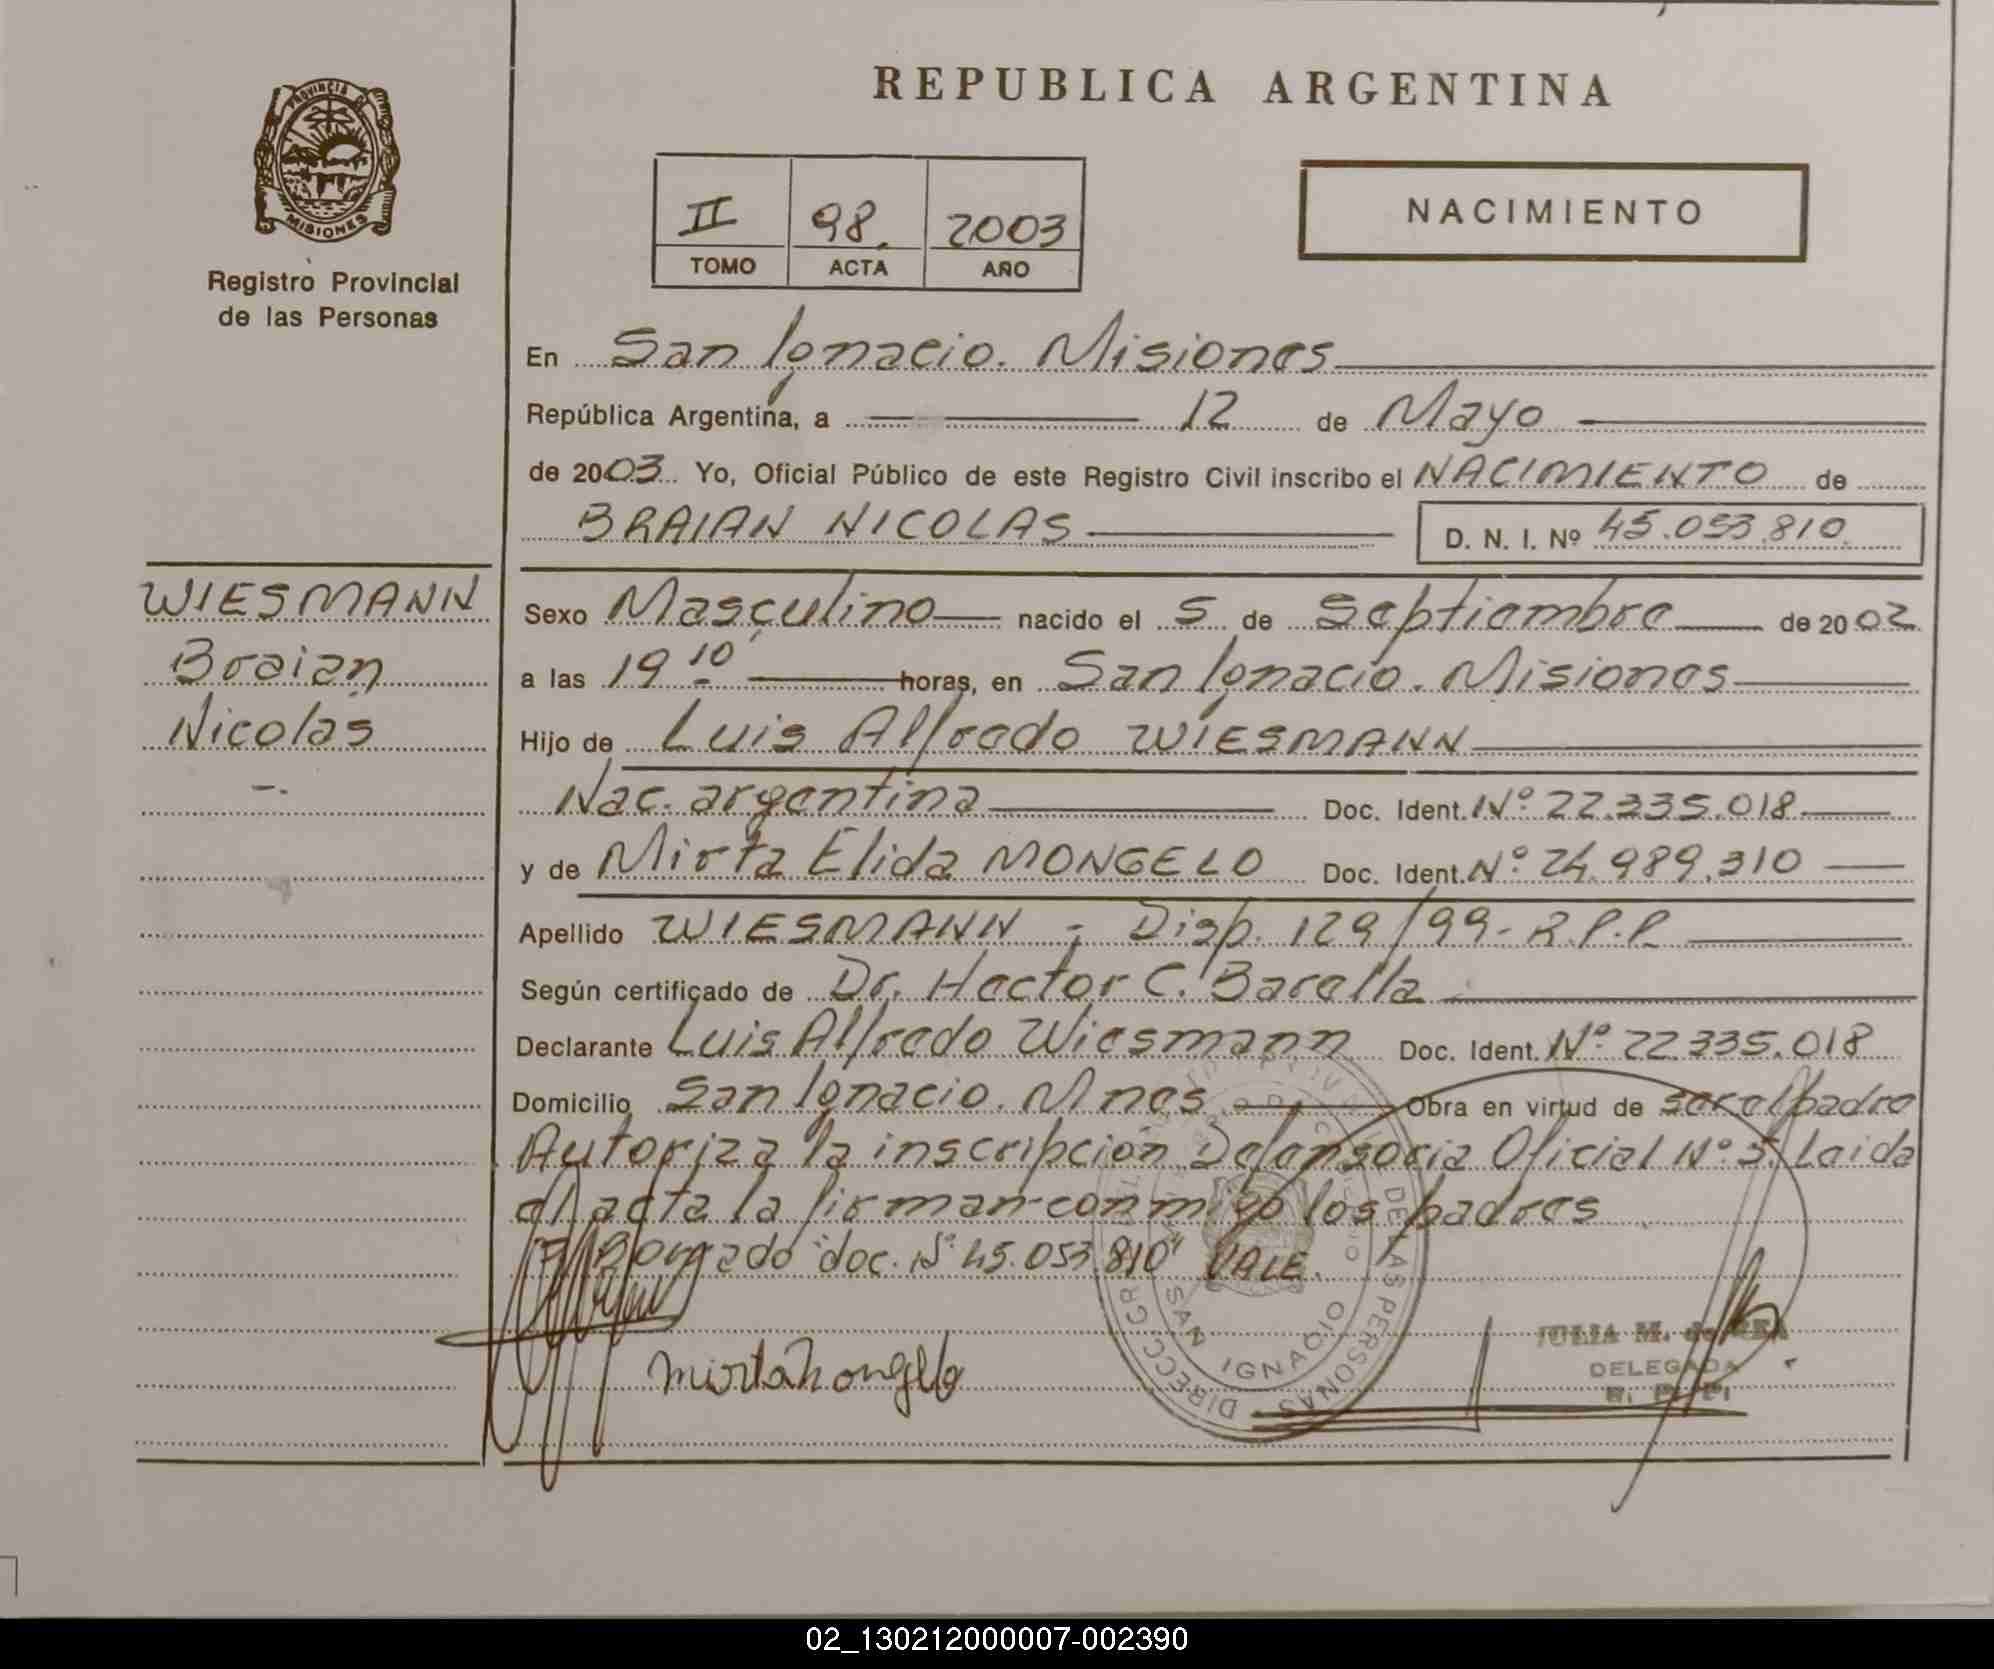 REPUBLICA ARGENTINA
PROVINCIA D
MISIONES
Registro Provincial
de las Personas
II 98. 2003
TOMO ACTA AÑO
NACIMIENTO
En San Ignacio. Misiones
República Argentina, a 12 de Mayo
de 2003 Yo, Oficial Público de este Registro Civil inscribo el NACIMIENTO de
BRAIAN NICOLAS D. N. I. Nº 45.053.810
WIESMANN
Braian
Nicolás
Sexo Masculino nacido el 5 de Septiembre de 2002
a las 19 10 horas, en San Ignacio. Misiones
Hijo de Luis Alfredo WIESMANN
Nac. argentina Doc. Ident. Nº 22.335.018
y de Mirta Elida MONGELO Doc. Ident. Nº 24.989.310
Apellido WIESMANN - Disp. 129/99- R.P.P.
Según certificado de Dr. Hector C. Barella
Declarante Luis Alfredo Wiesmann Doc. Ident. Nº 22.335.018
Domicilio San Ignacio. Mnes Obra en virtud de ser el padre
Autoriza la inscripción Defensoria Oficial Nº 5. Leida
el acta la firman conmigo los padres
Borrado "doc. Nº 45.053.810" VALE.
mirta mongelo
SAN IGNACIO
DE LAS PERSONAS
JULIA M. de
DELEGADA
R. P. P.
02_130212000007-002390